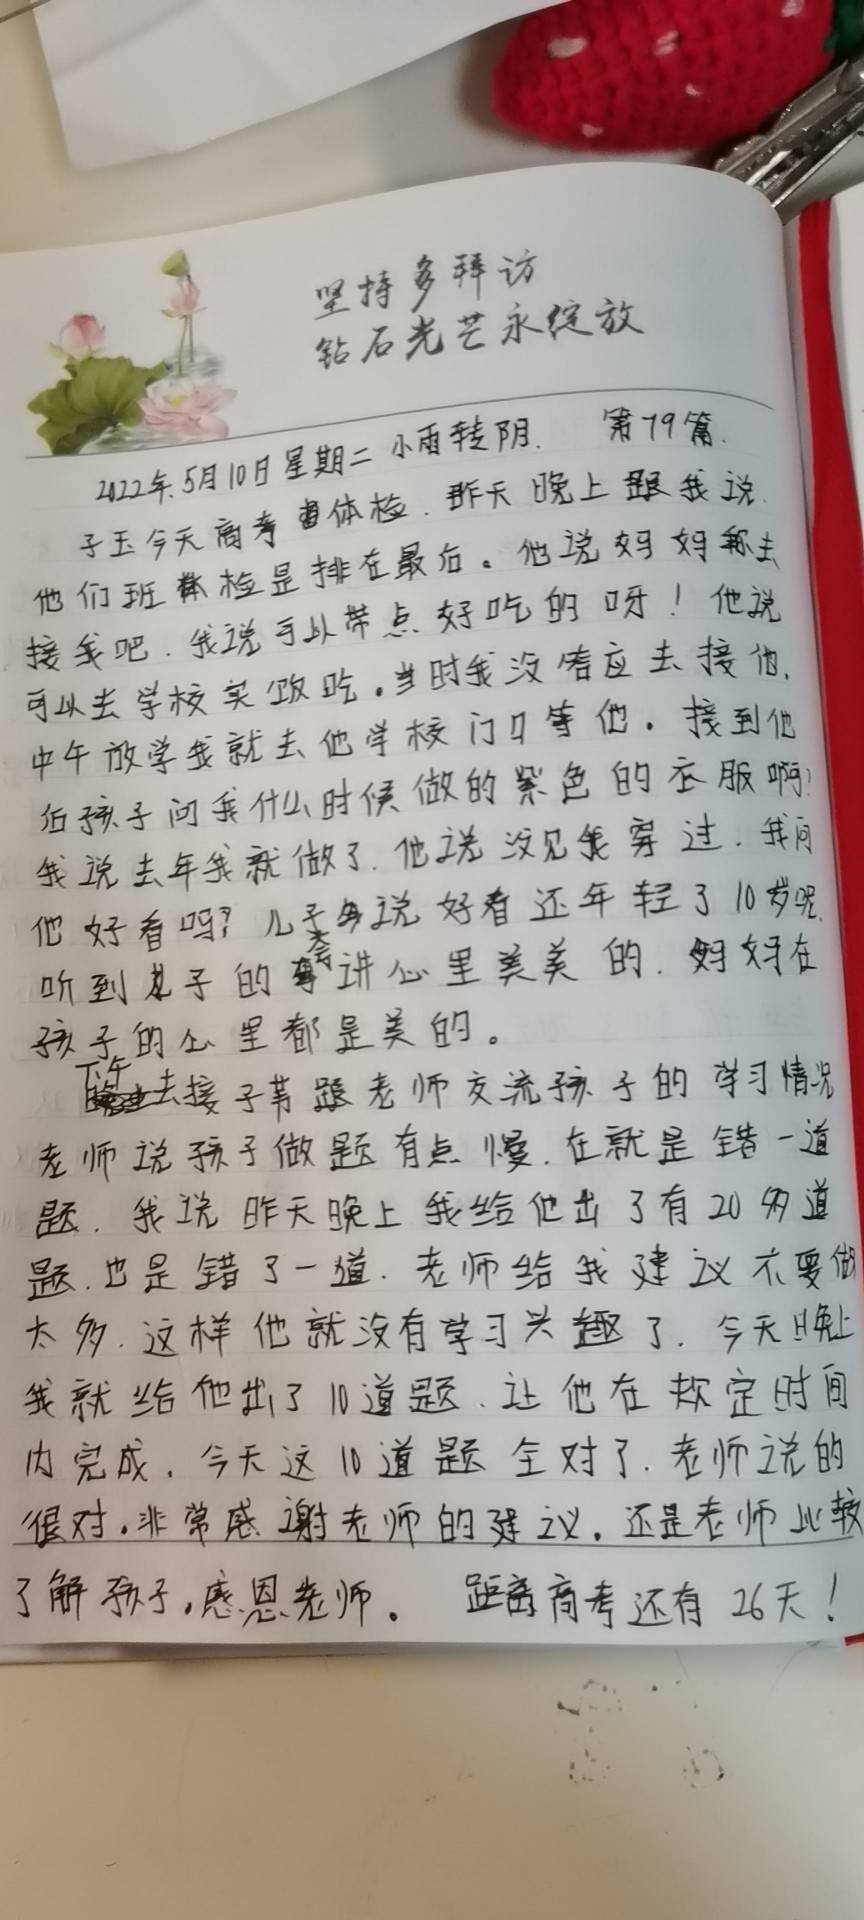 坚持多拜访
钻石光芒永绽放
2022年.5月10日星期二 小雨转阴. 第79篇.
子玉今天高考体检.昨天晚上跟我说.
他们班体检是排在最后。他说妈妈你去
接我吧.我说可以带点好吃的呀!他说
可以去学校买饭吃。当时我没答应去接他.
中午放学我就去他学校门口等他。接到他
后孩子问我什么时候做的紫色的衣服啊?
我说去年我就做了.他说没见我穿过.我问
他好看吗?儿子说好看还年轻了10岁呢.
听到儿子的夸讲心里美美的.妈妈在
孩子的心里都是美的。
下午去接子苒跟老师交流孩子的学习情况
老师说孩子做题有点慢.在就是错一道
题.我说昨天晚上我给他出了有20多道
题.也是错了一道.老师给我建议不要做
太多.这样他就没有学习兴趣了.今天晚上
我就给他出了10道题.让他在规定时间
内完成.今天这10道题全对了.老师说的
很对。非常感谢老师的建议。还是老师比较
了解孩子。感恩老师。 距离高考还有26天!